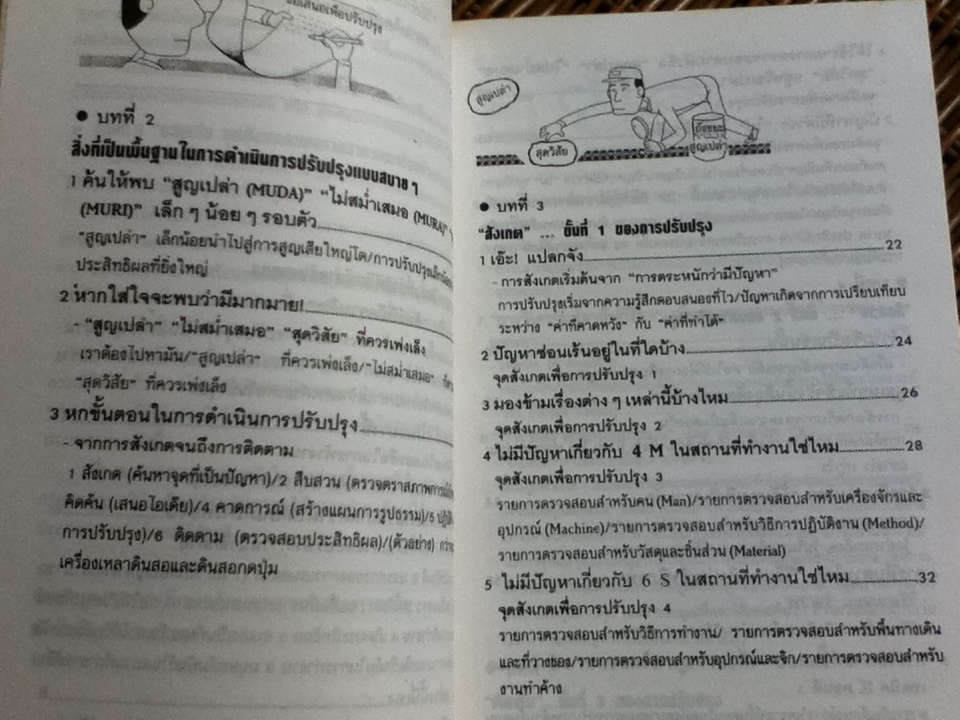 เสนอเพื่อปรับปรุง
● บทที่ 2
สิ่งที่เป็นพื้นฐานในการดำเนินการปรับปรุงแบบสบาย ๆ
1 ค้นให้พบ “สูญเปล่า (MUDA)” “ไม่สม่ำเสมอ (MURA)”
(MURI)” เล็ก ๆ น้อย ๆ รอบตัว
“สูญเปล่า” เล็กน้อยนำไปสู่การสูญเสียใหญ่โต/การปรับปรุงเล็กน้อย
ประสิทธิผลที่ยิ่งใหญ่
2 หากใส่ใจจะพบว่ามีมากมาย!
- “สูญเปล่า” “ไม่สม่ำเสมอ” “สุดวิสัย” ที่ควรเพ่งเล็ง
เราต้องไปหามัน/“สูญเปล่า” ที่ควรเพ่งเล็ง/“ไม่สม่ำเสมอ”
“สุดวิสัย” ที่ควรเพ่งเล็ง
3 หกขั้นตอนในการดำเนินการปรับปรุง
- จากการสังเกตจนถึงการติดตาม
1 สังเกต (ค้นหาจุดที่เป็นปัญหา)/2 สืบสวน (ตรวจตราสภาพการณ์
คิดค้น (เสนอไอเดีย)/4 คาดการณ์ (สร้างแผนการรูปธรรม)/5
การปรับปรุง)/6 ติดตาม (ตรวจสอบประสิทธิผล)/(ตัวอย่าง)
เครื่องเหลาดินสอและดินสอกดปุ่ม
สูญเปล่า
สุดวิสัย
สูญเปล่า
● บทที่ 3
“สังเกต” ... ขั้นที่ 1 ของการปรับปรุง
1 เอ๊ะ! แปลกจัง 22
- การสังเกตเริ่มต้นจาก “การตระหนักว่ามีปัญหา”
การปรับปรุงเริ่มจากความรู้สึกตอบสนองที่ไว/ปัญหาเกิดจากการเปรียบเทียบ
ระหว่าง “ค่าที่คาดหวัง” กับ “ค่าที่ทำได้”
2 ปัญหาซ่อนเร้นอยู่ในที่ใดบ้าง 24
จุดสังเกตเพื่อการปรับปรุง 1
3 มองข้ามเรื่องต่าง ๆ เหล่านี้บ้างไหม 26
จุดสังเกตเพื่อการปรับปรุง 2
4 ไม่มีปัญหาเกี่ยวกับ 4 M ในสถานที่ทำงานใช่ไหม 28
จุดสังเกตเพื่อการปรับปรุง 3
รายการตรวจสอบสำหรับคน (Man)/รายการตรวจสอบสำหรับเครื่องจักรและ
อุปกรณ์ (Machine)/รายการตรวจสอบสำหรับวิธีการปฏิบัติงาน (Method)/
รายการตรวจสอบสำหรับวัสดุและชิ้นส่วน (Material)
5 ไม่มีปัญหาเกี่ยวกับ 6 S ในสถานที่ทำงานใช่ไหม 32
จุดสังเกตเพื่อการปรับปรุง 4
รายการตรวจสอบสำหรับวิธีการทำงาน/ รายการตรวจสอบสำหรับพื้นทางเดิน
และที่วางของ/รายการตรวจสอบสำหรับอุปกรณ์และจิก/รายการตรวจสอบสำหรับ
งานทำค้าง